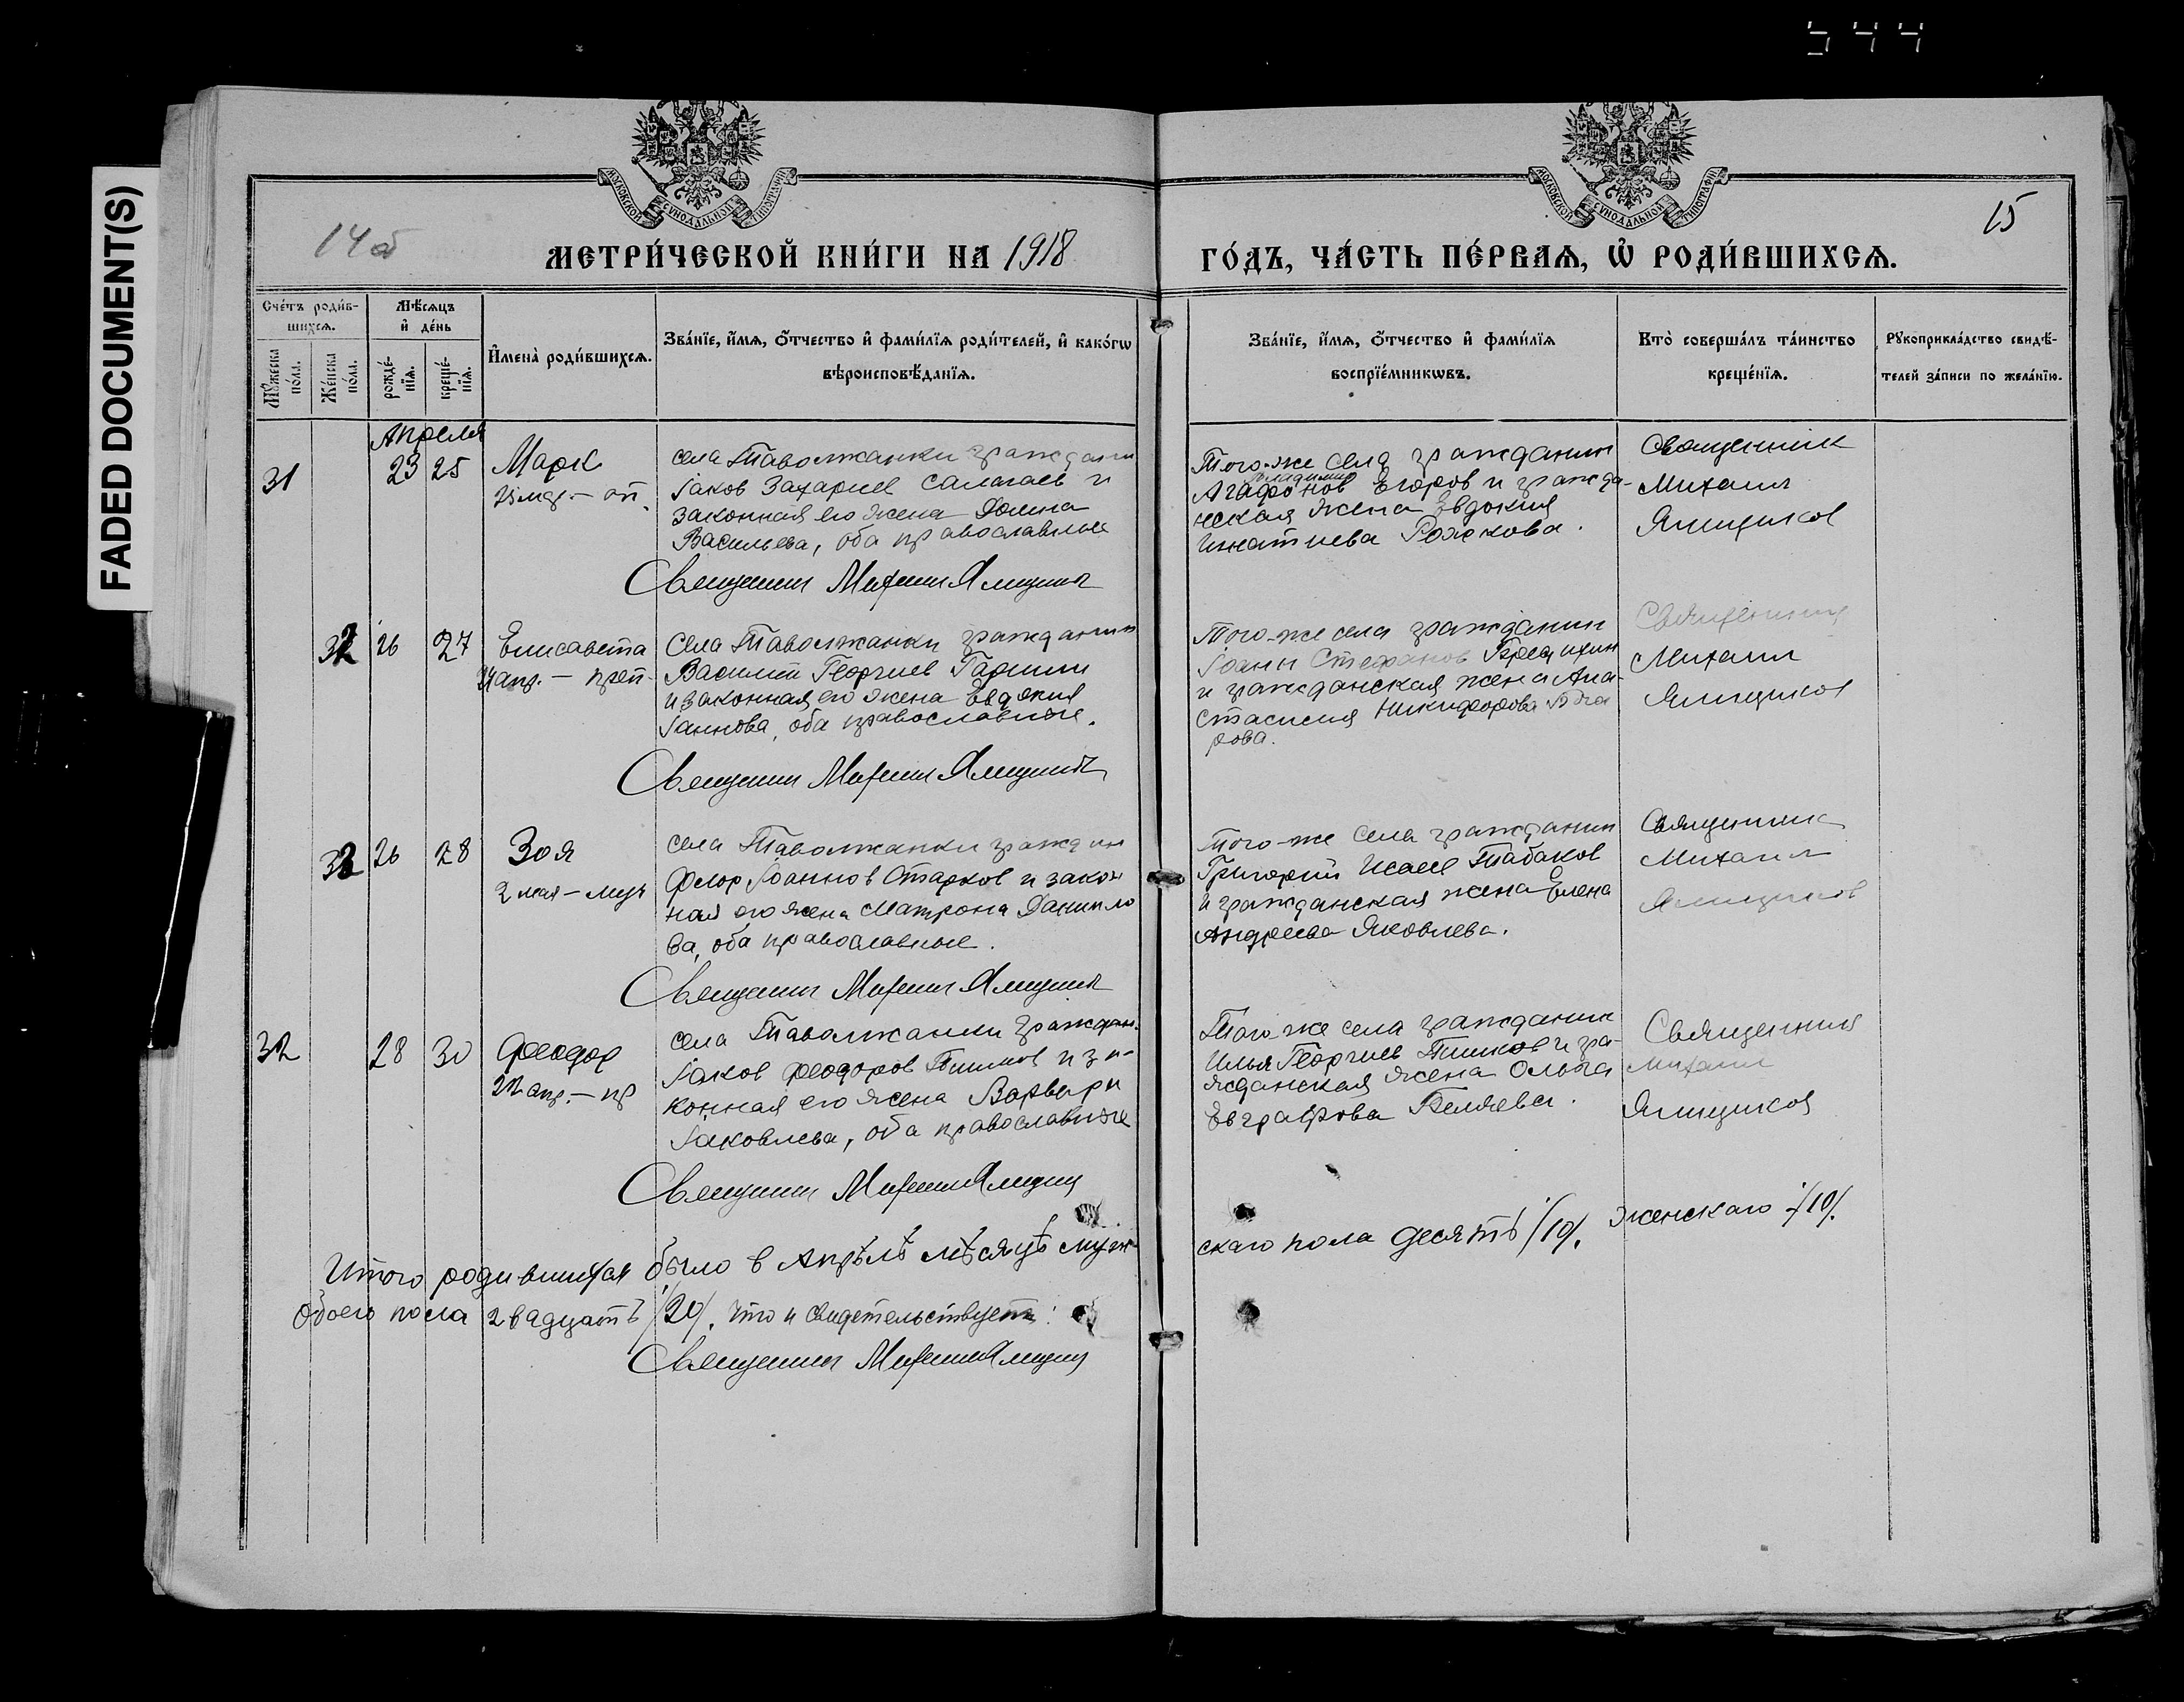 544
FADED DOCUMENT(S)
МОСКОВСКОЙ СѴНОДАЛЬНОЙ ТИПОГРАФІИ
МОСКОВСКОЙ СѴНОДАЛЬНОЙ ТИПОГРАФІИ
14об
15
МЕТРИ́ЧЕСКОЙ КНИ́ГИ НА 1918
ГО́ДЪ, ЧА́СТЬ ПЕ́РВАѦ, Ѡ҆ РОДИ́ВШИХСѦ.
Сче́тъ роди́в-
шихсѧ.
Мꙋ́жеска по́ла.
Же́нска по́ла.
Мѣ́сѧцъ
и҆ де́нь
рожде́-
нїѧ.
креще́-
нїѧ.
И҆мена̀ роди́вшихсѧ.
Зва́нїе, и҆́мѧ, ѻ҆́тчество и҆ фами́лїѧ роди́телей, и҆ како́гѡ
вѣроисповѣ́данїѧ.
Зва́нїе, и҆́мѧ, ѻ҆́тчество и҆ фами́лїѧ
воспрїе́мникѡвъ.
Кто̀ соверша́лъ та́инство
креще́нїѧ.
Рꙋкоприкла́дство свидѣ́-
телей за́писи по жела́нїю.
Апреля
31
23 25
Марк
села Таволжанки граждани
Іаков Захариев Салагаев и
законная его жена Домна
Васильева, оба православные
Священник Михаил Ямщиков
Того-же села гражданин
Владимир
Агафонов Егоров и гражда-
нская жена Евдокия
Игнатиева Рожкова.
Священник
Михаил
Ямщиков
32 26 27
Елисавета
Села Таволжанки гражданин
Василий Георгиев Гаршин
и законная его жена Евдокия
Іаннова, оба православные.
Священник Михаил Ямщиков
Того-же села гражданин
Іоанн Стефанов
и гражданская жена Ана-
стасия Никифорова
рова.
Священник
Михаил
Ямщиков
32 26 28
Зоя
2 мая – муч
села Таволжанки граждан
Флор Іоаннов Старков и закон
ная его жена Матрона Данило
ва, оба православные.
Священник Михаил Ямщиков
Того-же села гражданин
Григорий Исаев Табаков
и гражданская жена Елена
Андреева Яковлева.
Священник
Михаил
Ямщиков
32
28 30
Феодор
22 апр. – пр
села Таволжанки граждан.
Іаков Феодоров и за-
конная его жена Варвара
Іаковлева, оба православные
Священник Михаил Ямщиков
Того же села гражданин
Илья Георгиев и гра-
жданская жена Ольга
Евграфова Беляева.
Священник
Михаил
Ямщиков
Итого родившихся было в Апрѣлѣ мѣсяцѣ муж-
скаго пола десять /10/. женскаго /10/.
Обоего пола двадцать /20/. Что и свидетельствует:
Священник Михаил Ямщиков